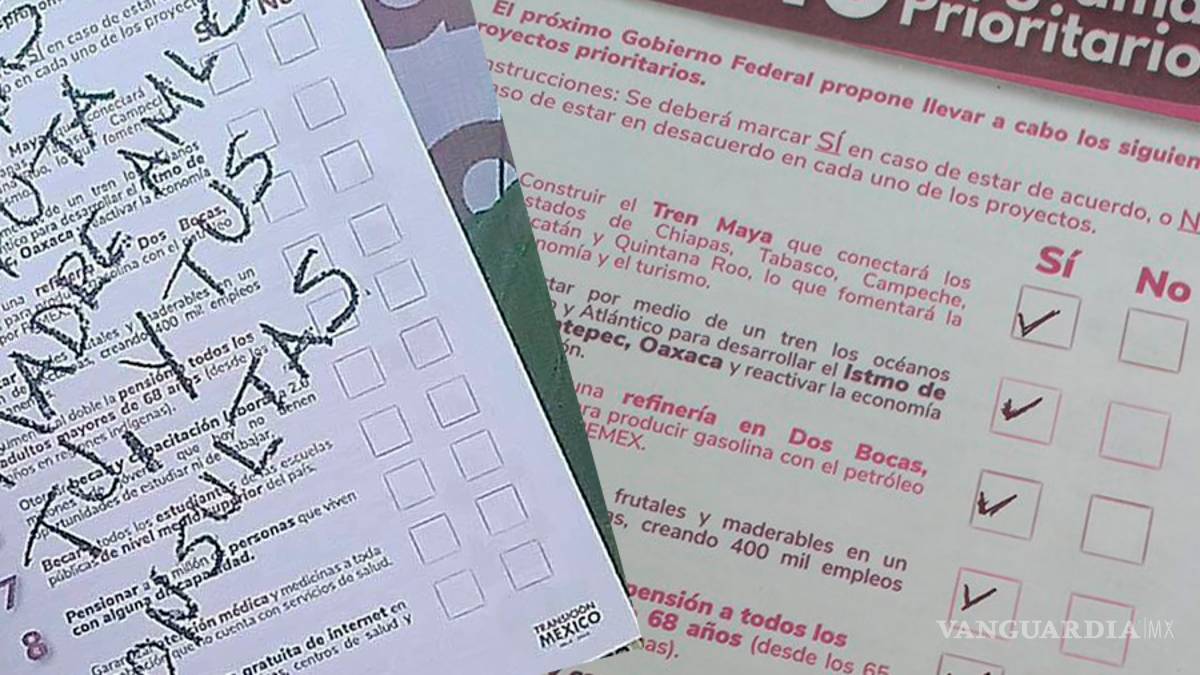 No
SÍ en caso de estar
en cada uno de los proyectos
conectará
Campeche
de un tren
Istmo de
para desarrollar el
Oaxaca y reactivar la economía
una refinería Dos Bocas,
gasolina con el petróleo
maderables en un
creando 400 mil empleos
doble la pensión a todos los
adultos mayores de 68 años (desde los
años en regiones indígenas).
Otorgar becas y capacitación laboral a 2.6
jóvenes que hoy no tienen
oportunidades de estudiar ni de trabajar.
Becar a todos los estudiantes de las escuelas
públicas de nivel medio superior del país.
7
Pensionar a un millón de personas que viven
con alguna discapacidad.
8
Garantizar atención médica y medicinas a toda
población que no cuenta con servicios de salud.
gratuita de internet en
centros de salud y
TRANSICIÓN
MÉXICO
PUTA
MADRE AMLO
TU Y TUS
CONSULTAS
Prioritario
El próximo Gobierno Federal propone llevar a cabo los siguien
royectos prioritarios.
nstrucciones: Se deberá marcar SÍ en caso de estar de acuerdo, o N
aso de estar en desacuerdo en cada uno de los proyectos.
Sí No
Construir el Tren Maya que conectará los
stados de Chiapas, Tabasco, Campeche,
catán y Quintana Roo, lo que fomentará la
nomía y el turismo.
ctar por medio de un tren los océanos
o y Atlántico para desarrollar el Istmo de
ntepec, Oaxaca y reactivar la economía
ón.
una refinería en Dos Bocas,
ra producir gasolina con el petróleo
EMEX.
frutales y maderables en un
as, creando 400 mil empleos
pensión a todos los
68 años (desde los 65
nas).
VANGUARDIA|MX